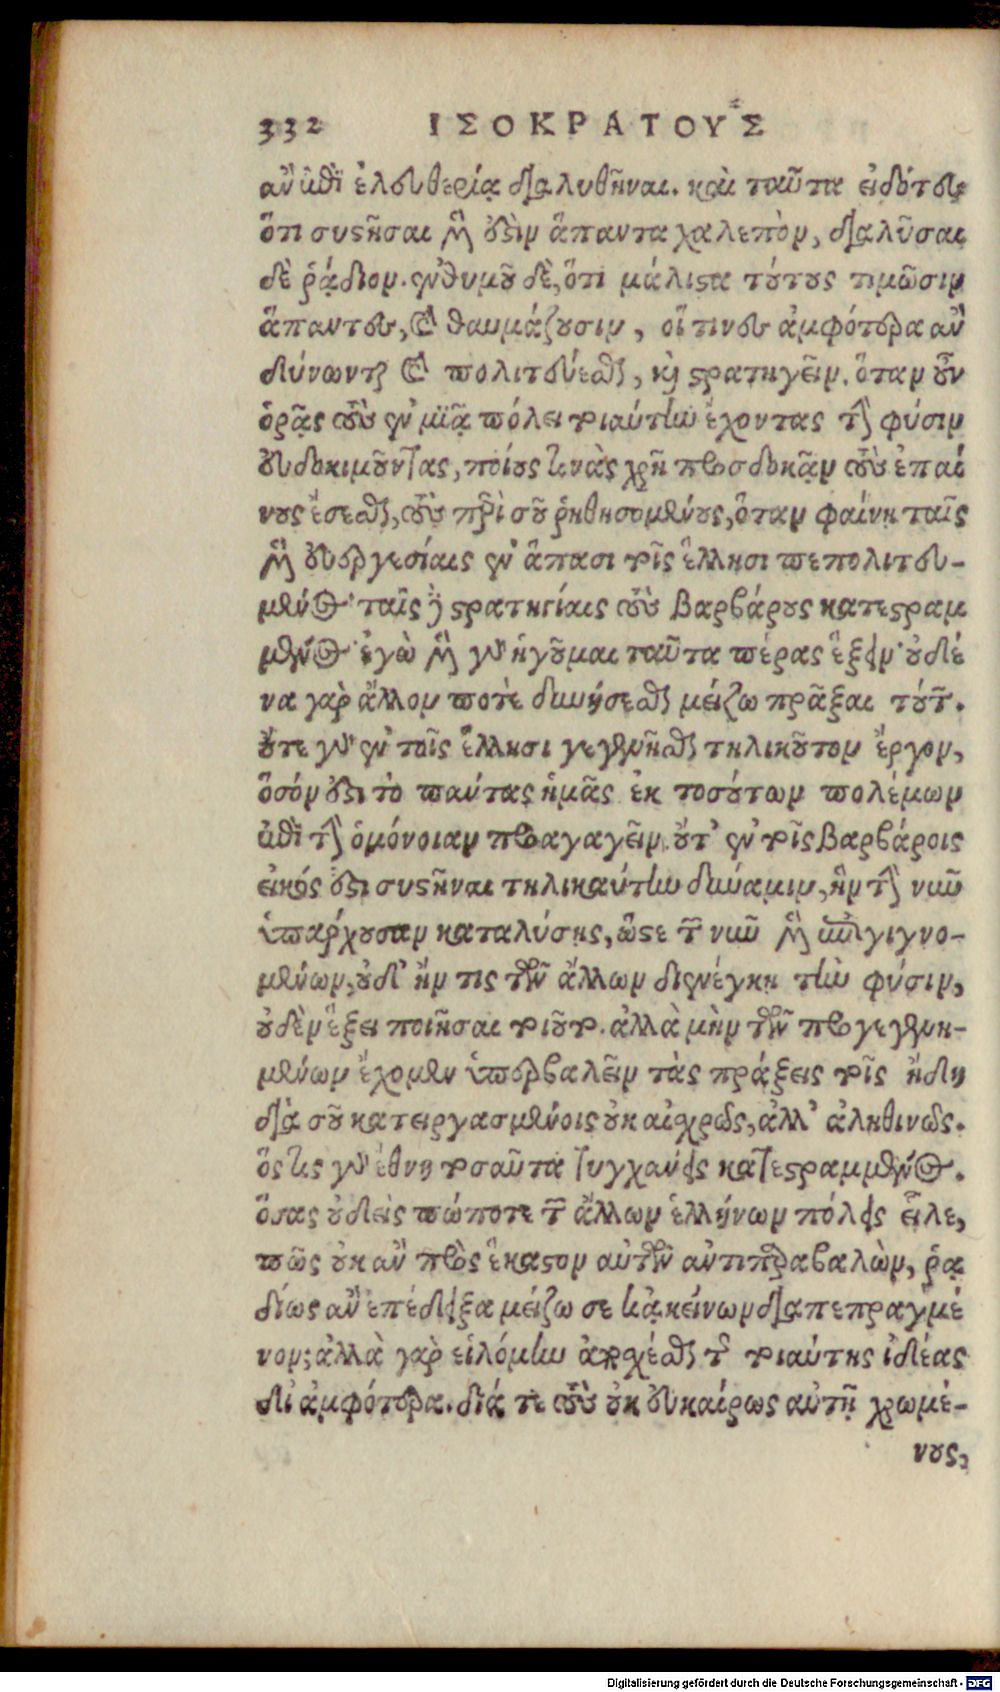 332 ΙΣΟΚΡΑΤΟΥΣ
ἂν ἐπὶ ἐλευθερίᾳ διαλυθῆναι. καὶ ταῦτα εἰδότες
ὅτι συστῆσαι μὲν ὅστιν ἅπαντα χαλεπὸν, διαλῦσαι
δὲ ῥᾴδιον. ἐνθυμοῦ δὲ, ὅτι μάλιστα τούτους τιμῶσιν
ἅπαντες, καὶ θαυμάζουσιν, οἵτινες ἀμφότερα ἂν
δύνωνται καὶ πολιτεύεσθαι, καὶ στρατηγεῖν. ὅταν οὖν
ὁρᾷς τοὺς ἐν μιᾷ πόλει τοιαύτην ἔχοντας τὴν φύσιν
εὐδοκιμοῦντας, ποίους τινὰς χρὴ προσδοκᾷν τοὺς ἐπαί
νους ἔσεσθαι, τοὺς περὶ σοῦ ῥηθησομένους, ὅταν φαίνῃ ταῖς
μὲν εὐεργεσίαις ἐν ἅπασι τοῖς ἕλλησι πεπολιτευ-
μένος· ταῖς δὲ στρατηγίαις τοὺς βαρβάρους κατεστραμ
μένος· ἐγὼ μὲν γὰρ ἡγοῦμαι ταῦτα πέρας ἕξειν· οὐδέ
να γὰρ ἄλλον ποτὲ δυνήσεσθαι μείζω πρᾶξαι τούτων.
οὔτε γὰρ ἐν τοῖς ἕλλησι γεγενῆσθαι τηλικοῦτον ἔργον,
ὅσόν ἐστι τὸ πάντας ἡμᾶς ἐκ τοσούτων πολέμων
ἐπὶ τὴν ὁμόνοιαν προαγαγεῖν. οὔτ' ἐν τοῖς βαρβάροις
εἰκός ἐστι συστῆναι τηλικαύτην δύναμιν, ἢν τὴν νῦν
ὑπάρχουσαν καταλύσῃς, ὥστε τῶν νῦν μὲν ἐπιγιγνο-
μένων, οὐδ' ἤν τις τῶν ἄλλων διενέγκῃ τὴν φύσιν,
οὐδὲν ἕξει ποιῆσαι τοιοῦτο. ἀλλὰ μὴν τῶν προγεγενη-
μένων ἔχομεν ὑπερβαλεῖν τὰς πράξεις τοῖς ἤδη
διὰ σοῦ κατειργασμένοις οὐκ αἰσχρῶς, ἀλλ' ἀληθινῶς.
ὅς τις γὰρ ἔθνη τοσαῦτα τυγχάνεις κατεστραμμένος.
ὅσας οὐδεὶς πώποτε τῶν ἄλλων ἑλλήνων πόλεις εἷλε,
πῶς οὐκ ἂν πρὸς ἕκαστον αὐτῶν ἀντιπαραβαλὼν, ῥᾳ
δίως ἂν ἐπέδειξα μείζω σε κᾀκείνων διαπεπραγμέ
νον; ἀλλὰ γὰρ εἱλόμην ἀπέχεσθαι τῆς τοιαύτης ἰδέας
δι' ἀμφότερα. διά τε τοὺς οὐκ εὐκαίρως αὐτῇ χρωμέ-
νους,
Digitalisierung gefördert durch die Deutsche Forschungsgemeinschaft - DFG